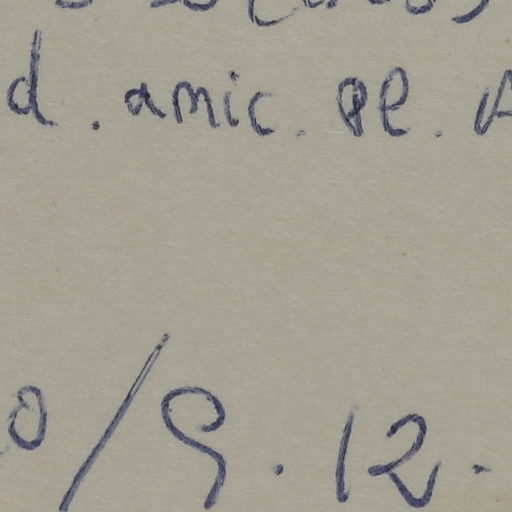 d. amic. pl. A
0/9.12.